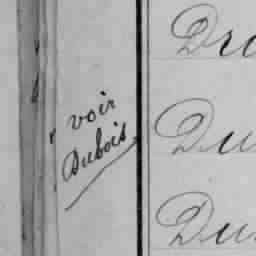 voir
Dubois
Dr
Du
Du